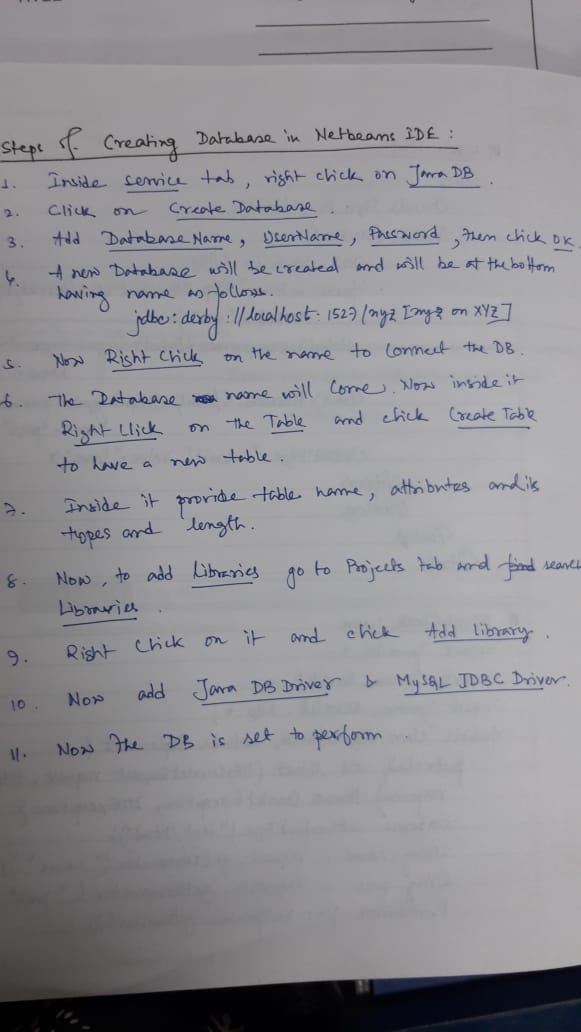 Steps of Creating Database in Netbeans IDE :
1. Inside service tab, right click on Java DB.
2. Click on Create Database.
3. Add Database Name, UserName, Password, then click OK.
4. A new Database will be created and will be at the bottom
having name as follows.
jdbc:derby://localhost:1527/xyz [xyz on XYZ]
5. Now Right Click on the name to connect the DB.
6. The Database name will come. Now inside it
Right Click on the Table and click Create Table
to have a new table.
7. Inside it provide table name, attributes and its
types and length.
8. Now, to add Libraries go to Projects tab and find search
Libraries.
9. Right Click on it and click Add library.
10. Now add Java DB Driver & MySQL JDBC Driver.
11. Now the DB is set to perform